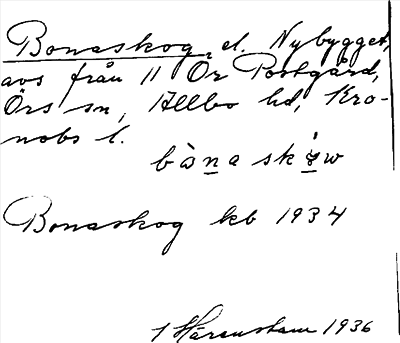 Bonaskog el. Nybygget,
avs från 11 Ör Postgård,
Örs sn, Allbo hd, Kro-
nobs l.
Bonaskog kb 1934
1936